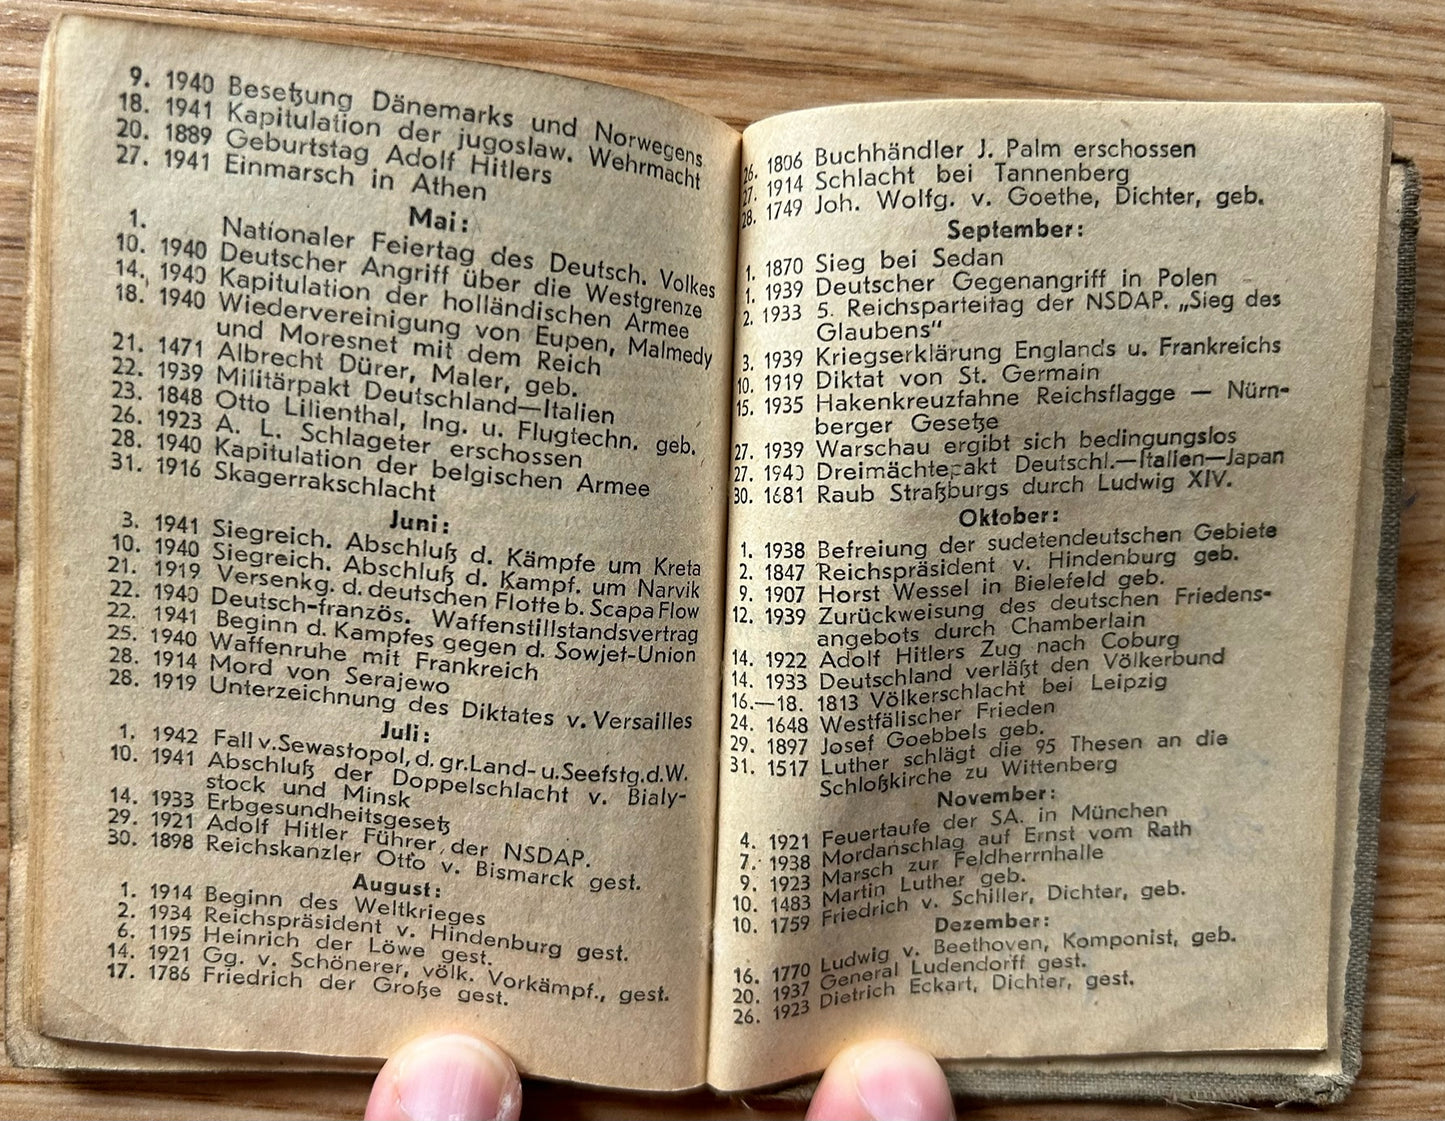 9. 1940 Besetzung Dänemarks und Norwegens
18. 1941 Kapitulation der jugoslaw. Wehrmacht
20. 1889 Geburtstag Adolf Hitlers
27. 1941 Einmarsch in Athen
Mai:
1. Nationaler Feiertag des Deutsch. Volkes
10. 1940 Deutscher Angriff über die Westgrenze
14. 1940 Kapitulation der holländischen Armee
18. 1940 Wiedervereinigung von Eupen, Malmedy
und Moresnet mit dem Reich
21. 1471 Albrecht Dürer, Maler, geb.
22. 1939 Militärpakt Deutschland—Italien
23. 1848 Otto Lilienthal, Ing. u. Flugtechn. geb.
26. 1923 A. L. Schlageter erschossen
28. 1940 Kapitulation der belgischen Armee
31. 1916 Skagerrakschlacht
Juni:
3. 1941 Siegreich. Abschluß d. Kämpfe um Kreta
10. 1940 Siegreich. Abschluß d. Kampf. um Narvik
21. 1919 Versenkg. d. deutschen Flotte b. Scapa Flow
22. 1940 Deutsch-französ. Waffenstillstandsvertrag
22. 1941 Beginn d. Kampfes gegen d. Sowjet-Union
25. 1940 Waffenruhe mit Frankreich
28. 1914 Mord von Serajewo
28. 1919 Unterzeichnung des Diktates v. Versailles
Juli:
1. 1942 Fall v. Sewastopol, d. gr. Land- u. Seefstg. d. W.
10. 1941 Abschluß der Doppelschlacht v. Bialy-
stock und Minsk
14. 1933 Erbgesundheitsgesetz
29. 1921 Adolf Hitler Führer der NSDAP.
30. 1898 Reichskanzler Otto v. Bismarck gest.
August:
1. 1914 Beginn des Weltkrieges
2. 1934 Reichspräsident v. Hindenburg gest.
6. 1195 Heinrich der Löwe gest.
14. 1921 Gg. v. Schönerer, völk. Vorkämpf., gest.
17. 1786 Friedrich der Große gest.
26. 1806 Buchhändler J. Palm erschossen
27. 1914 Schlacht bei Tannenberg
28. 1749 Joh. Wolfg. v. Goethe, Dichter, geb.
September:
1. 1870 Sieg bei Sedan
1. 1939 Deutscher Gegenangriff in Polen
2. 1933 5. Reichsparteitag der NSDAP. „Sieg des
Glaubens"
3. 1939 Kriegserklärung Englands u. Frankreichs
10. 1919 Diktat von St. Germain
15. 1935 Hakenkreuzfahne Reichsflagge — Nürn-
berger Gesetze
27. 1939 Warschau ergibt sich bedingungslos
27. 1940 Dreimächtepakt Deutschl.—Italien—Japan
30. 1681 Raub Straßburgs durch Ludwig XIV.
Oktober:
1. 1938 Befreiung der sudetendeutschen Gebiete
2. 1847 Reichspräsident v. Hindenburg geb.
9. 1907 Horst Wessel in Bielefeld geb.
12. 1939 Zurückweisung des deutschen Friedens-
angebots durch Chamberlain
14. 1922 Adolf Hitlers Zug nach Coburg
14. 1933 Deutschland verläßt den Völkerbund
16.—18. 1813 Völkerschlacht bei Leipzig
24. 1648 Westfälischer Frieden
29. 1897 Josef Goebbels geb.
31. 1517 Luther schlägt die 95 Thesen an die
Schloßkirche zu Wittenberg
November:
4. 1921 Feuertaufe der SA. in München
7. 1938 Mordanschlag auf Ernst vom Rath
9. 1923 Marsch zur Feldherrnhalle
10. 1483 Martin Luther geb.
10. 1759 Friedrich v. Schiller, Dichter, geb.
Dezember:
16. 1770 Ludwig v. Beethoven, Komponist, geb.
20. 1937 General Ludendorff gest.
26. 1923 Dietrich Eckart, Dichter, gest.